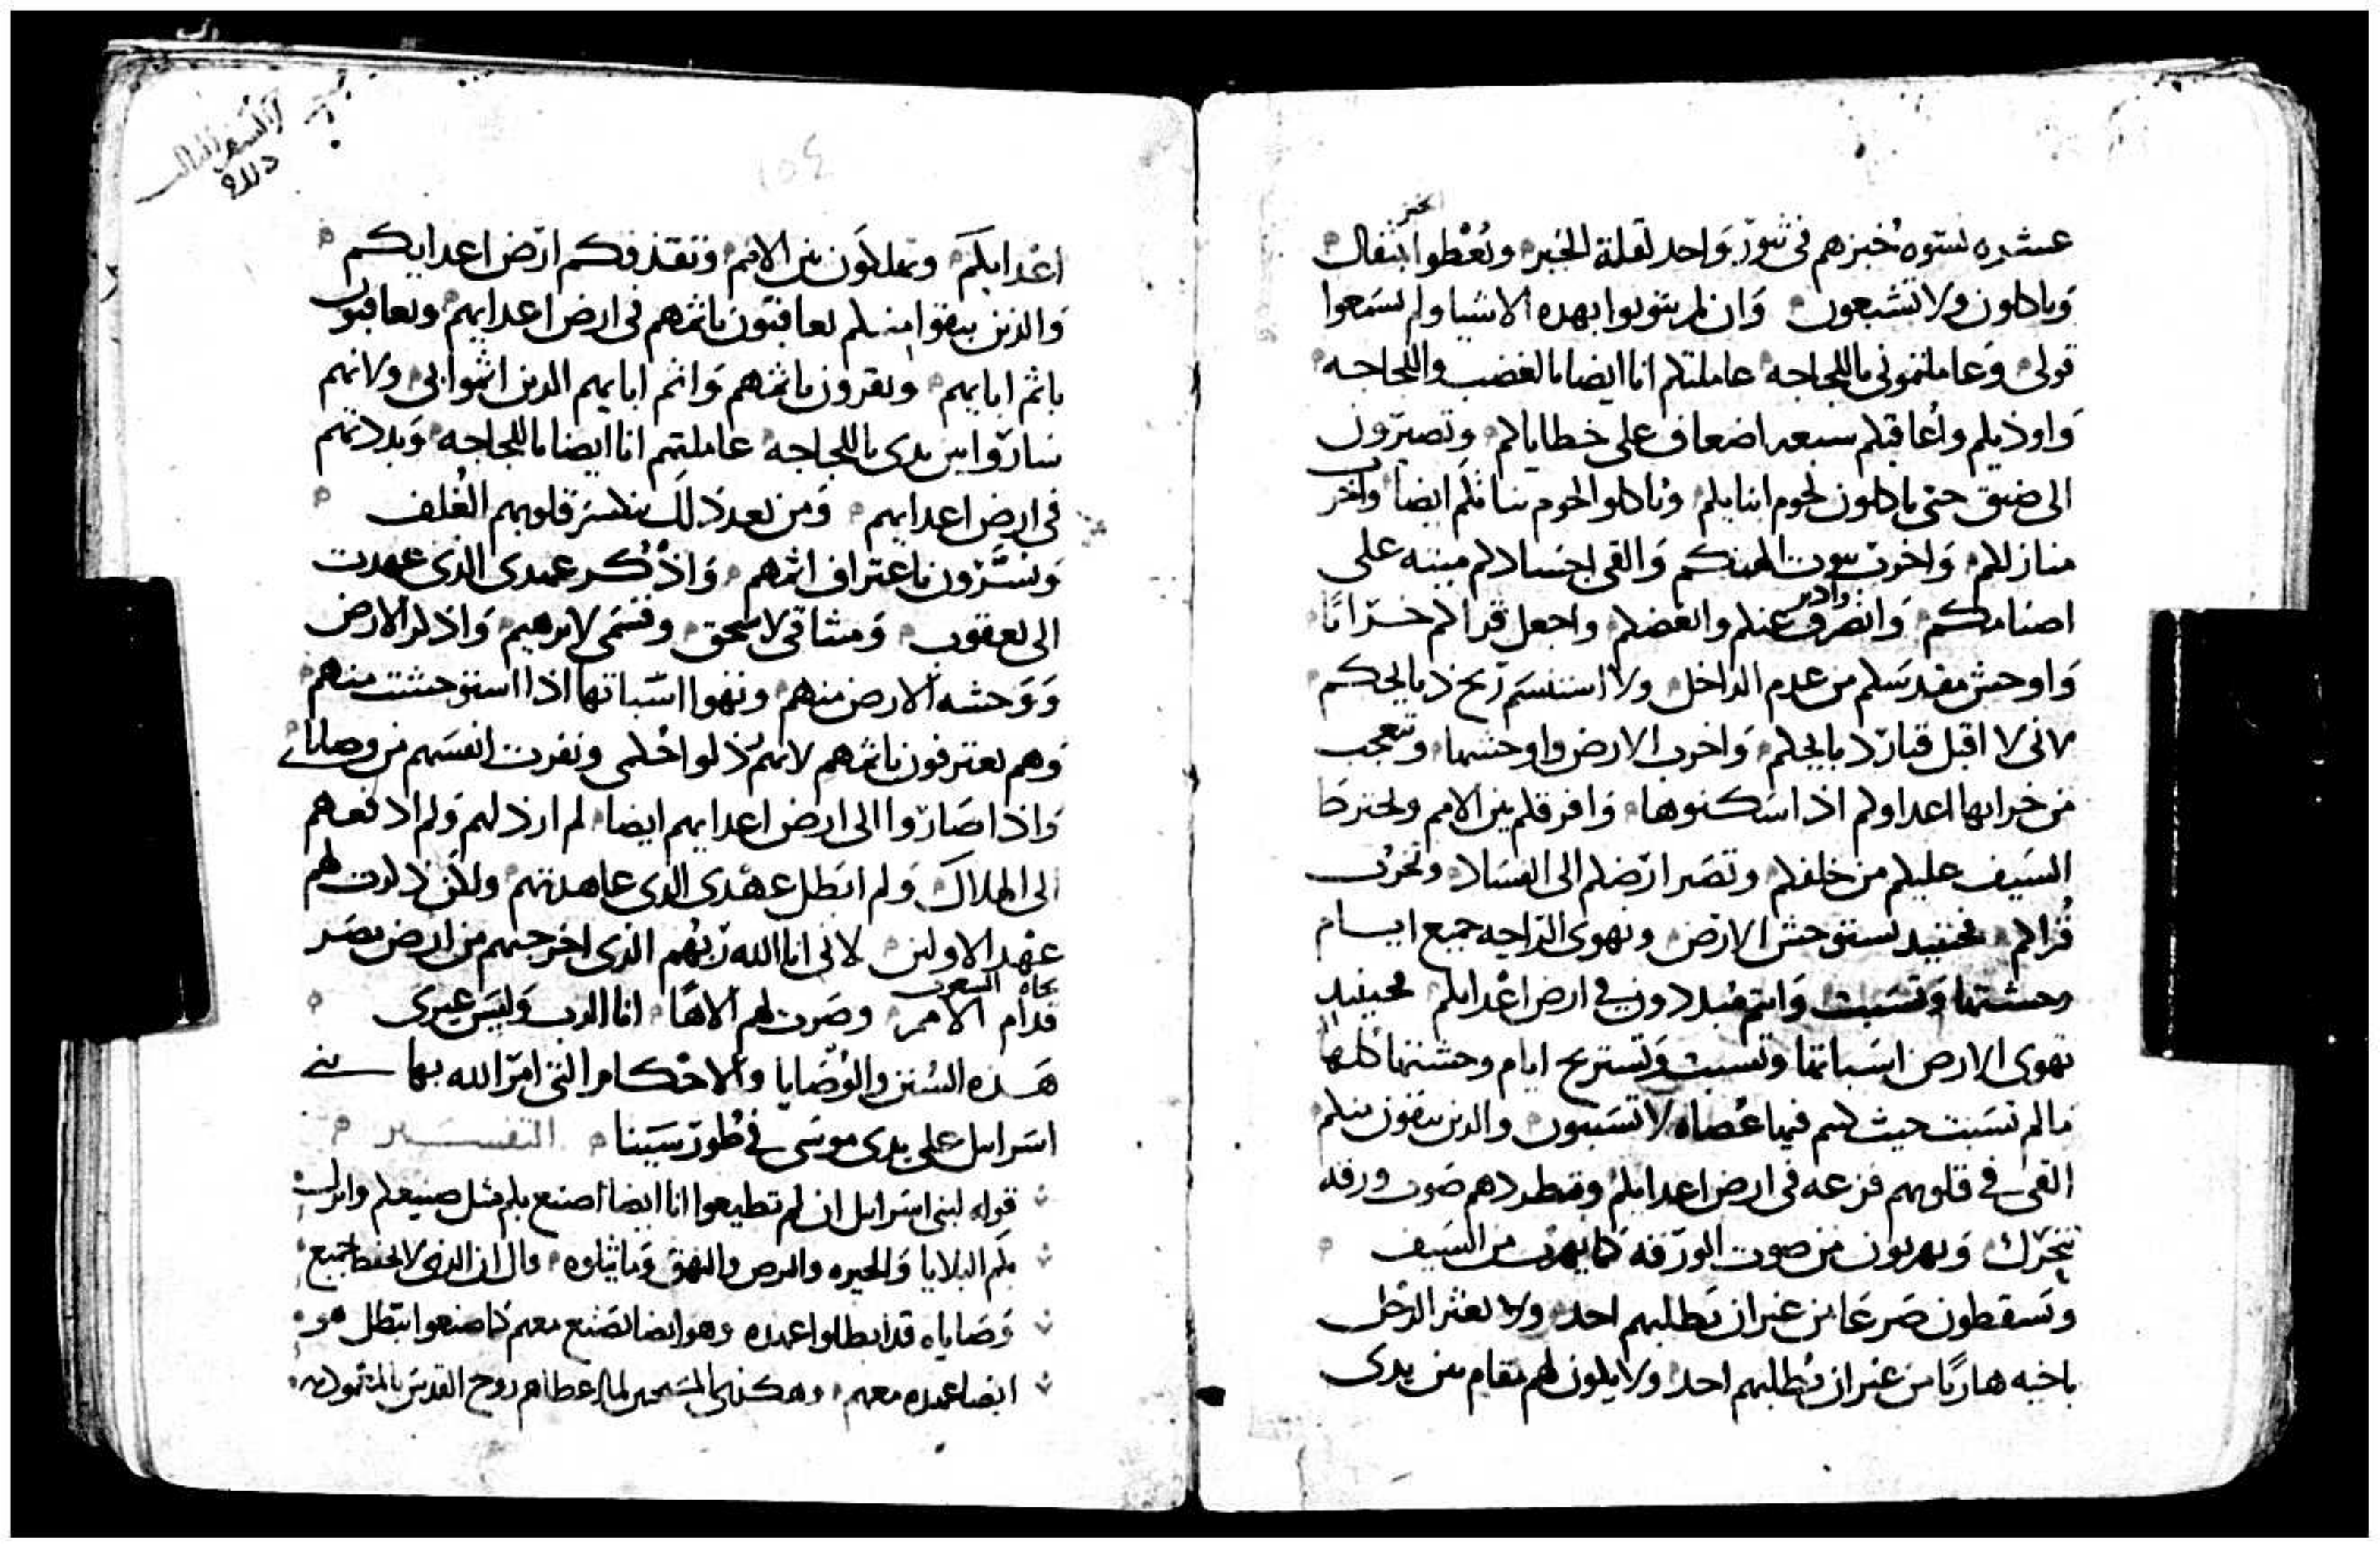 الخبز
عشره نسوه خبزهم في تنور واحد لقلة الخبز وتعطوا بثقال
وياكلون ولا تشبعون وان لم يتوبوا بهده الاشيا ولم تسمعوا
قولي وعاملتموني باللجاجه عاملتكم انا ايضا بالغضب واللجاجه
واوذيكم واعاقبكم سبعه اضعاف على خطاياكم وتصيرون
الى ضيق حتى ياكلون لحوم ابنايكم وتاكلوا لحوم بناتكم ايضا واخرب
منازلكم واخرب بيوت الهتكم والقي اجسادكم ميته على
وادبر
اصنامكم وانصرف عنكم وابغضكم واجعل قراكم خرابا
واوحش مقدسكم من عدم الداخل ولا استنسم ريح ذبايحكم
لاني لا اقبل قتار دبايحكم واخرب الارض واوحشها وتتعجب
من خرابها اعداوكم اذا سكنوها وافرقكم بين الامم ويخترط
السيف عليكم من خلفكم وتصير ارضكم الى الفساد وتخرب
قراكم فحينيد تستوحش الارض وتهوى الراحه جميع ايام
وحشتها وتسبت وانتم مبددون في ارض اعدايكم فحينيد
تهوى الارض اسباتها وتسبت وتستريح ايام وحشتها كلها
ما لم تسبت حيث كنتم فيها عصاه لا تسبتون والدين يبقون منكم
القي في قلوبهم فزعه في ارض اعدايكم وتطردهم صوت ورقه
تتحرك ويهربون من صوت الورقه كما يهرب من السيف
وتسقطون صرعا من غير ان يطلبهم احد ولا يعثر الرجل
باخيه هاربا من غير ان يطلبهم احد ولا يكون لهم مقام بين يدى
السفر الثالث
١٥٤
اعدايكم وتهلكون بين الامم وتقذفكم ارض اعدايكم
والذين يبقوا منكم يعاقبون باثمهم في ارض اعدايهم ويعاقبون
باثم ابايهم ويقرون باثمهم واثم ابايهم الدين اثموا بي ولانهم
ساروا بين يدى باللجاجه عاملتهم انا ايضا باللجاجه وبددتهم
في ارض اعدايهم ومن بعد ذلك ينكسر قلوبهم الغلف
ويسرون باعتراف اثمهم واذكر عهدى الذى عهدت
الى يعقوب وميثاقي لاسحق وقسمي لابرهيم واذكر الارض
ووحشه الارض منهم وتهوا اسباتها اذا استوحشت منهم
وهم يعترفون باثمهم لانهم رذلوا احكامي ونفرت انفسهم من وصاياي
واذا صاروا الى ارض اعدايهم ايضا لم ارذلهم ولم ادفعهم
الى الهلاك ولم ابطل عهدى الدى عاهدتهم ولكن ذكرت لهم
عهد الاولين لاني انا الله ربهم الذى اخرجهم من ارض مصر
تجاه الشعوب
قدام الامم وصرت لهم الاها انا الرب وليس غيرى
هذه السنن والوصايا والاحكام التي امر الله بها بني
اسرايل على يدى موسى في طور سينا التفسير
قوله لبني اسرايل ان لم تطيعوا انا ايضا اصنع بكم مثل صنيعكم وانزل
بكم البلايا والحيره والبرص والبهق وما يتلوه قال ان الذى لا يحفظ جميع
وصاياه قد ابطلوا عهده وهو ايضا يصنع معهم كما صنعوا ابتطل هو
ايضا عهده معهم وهكذا المسيحين لما اعطاهم روح القدس بالمعموديه